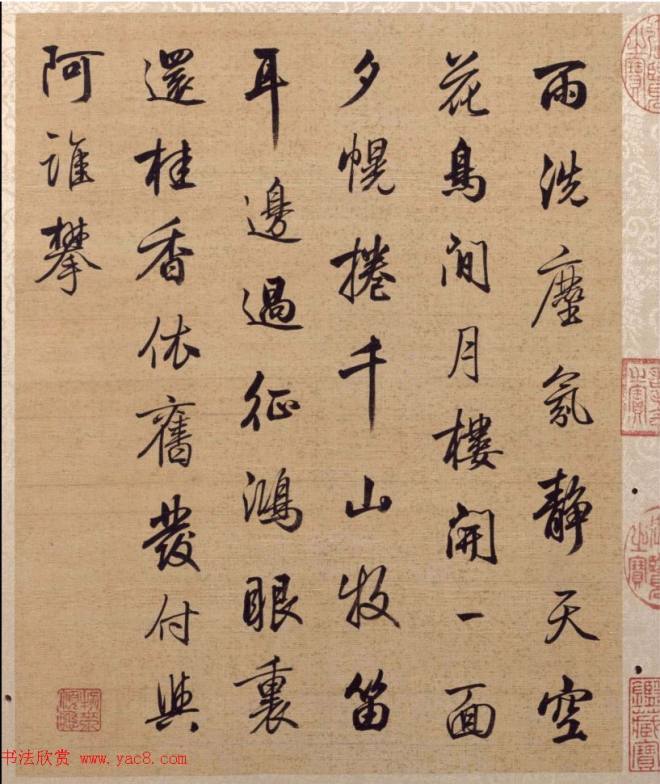 雨洗塵氛静天空
花鳥閒月樓開一面
夕幌捲千山牧笛
耳邊過征鴻眼裏
還桂香依舊發付與
阿誰攀
書法欣赏 www.yac8.com